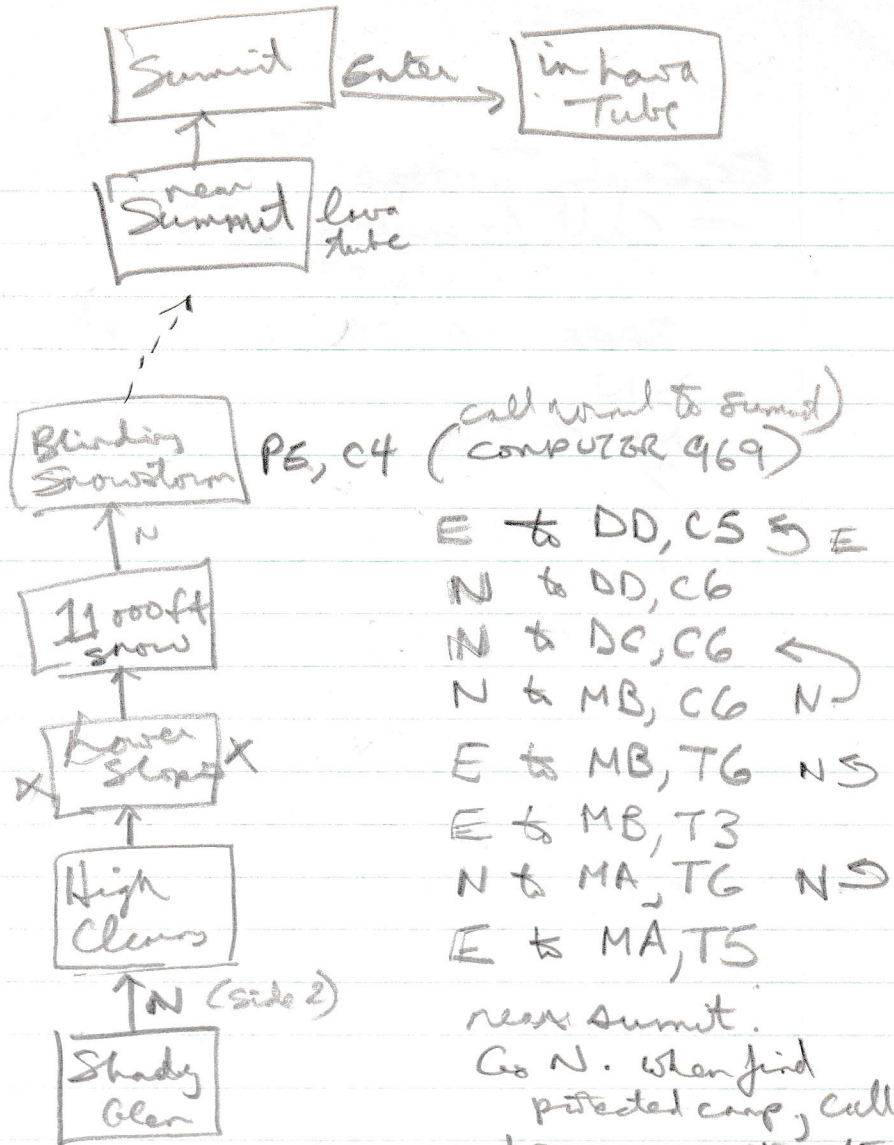 Summit
Enter
in Lava
Tube
near
Summit
lava
tube
Blinding
Snowstorm
PE, C4
(call wind to summit)
(COMPUTER 969)
N
11000ft
snow
X Lower X
Slopes
High
N (side 2)
Shady
Glen
E to DD, C5 E
N to DD, C6
N to DC, C6
N to MB, C6 N
E to MB, T6 N
E to MB, T3
N to MA, T6 N
E to MA, T5
near summit.
Go N. when find
protected camp, call